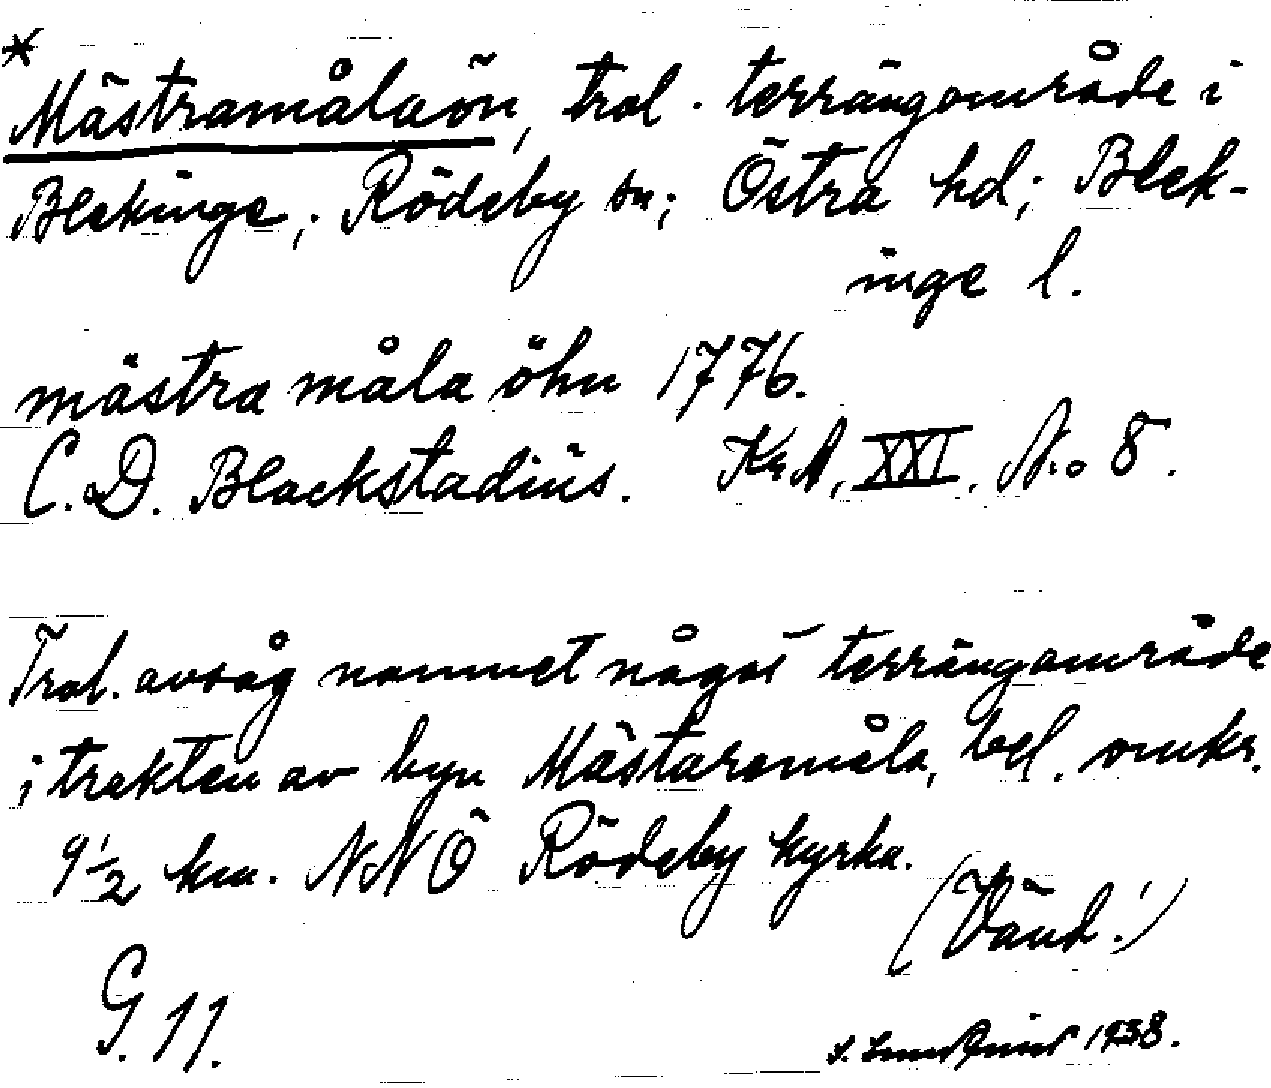 * Mästramålaön, trol. terrängområde i
Blekinge; Rödeby sn; Östra hd; Blek-
inge l.
mästra måla öhn 1776.
C. D. Blackstadius. KrA, XXI, No 8.
Trol. avsåg namnet något terrängområde
i trakten av byn Mästaremåla, bel. omkr.
9 1/2 km. NNÖ Rödeby kyrka.
(Vänd!)
G. 11.
1938.